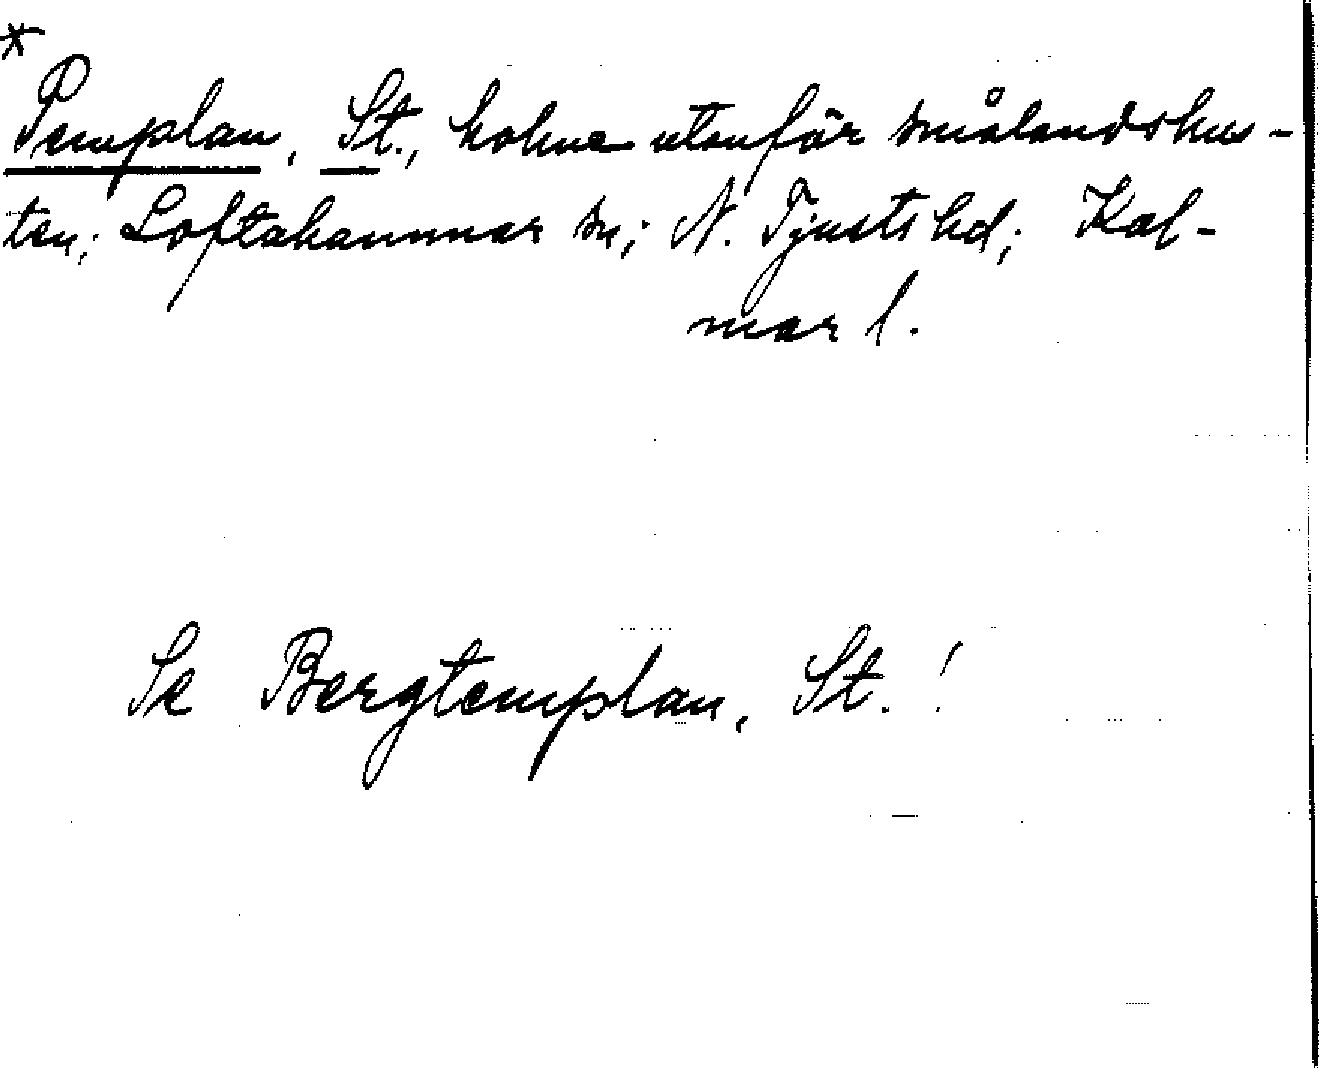 *
Templan, St., holme utanför smålandskus-
ten; Loftahammar sn; N. Tjusts hd; Kal-
mar l.
Se Bergtemplan, St. !